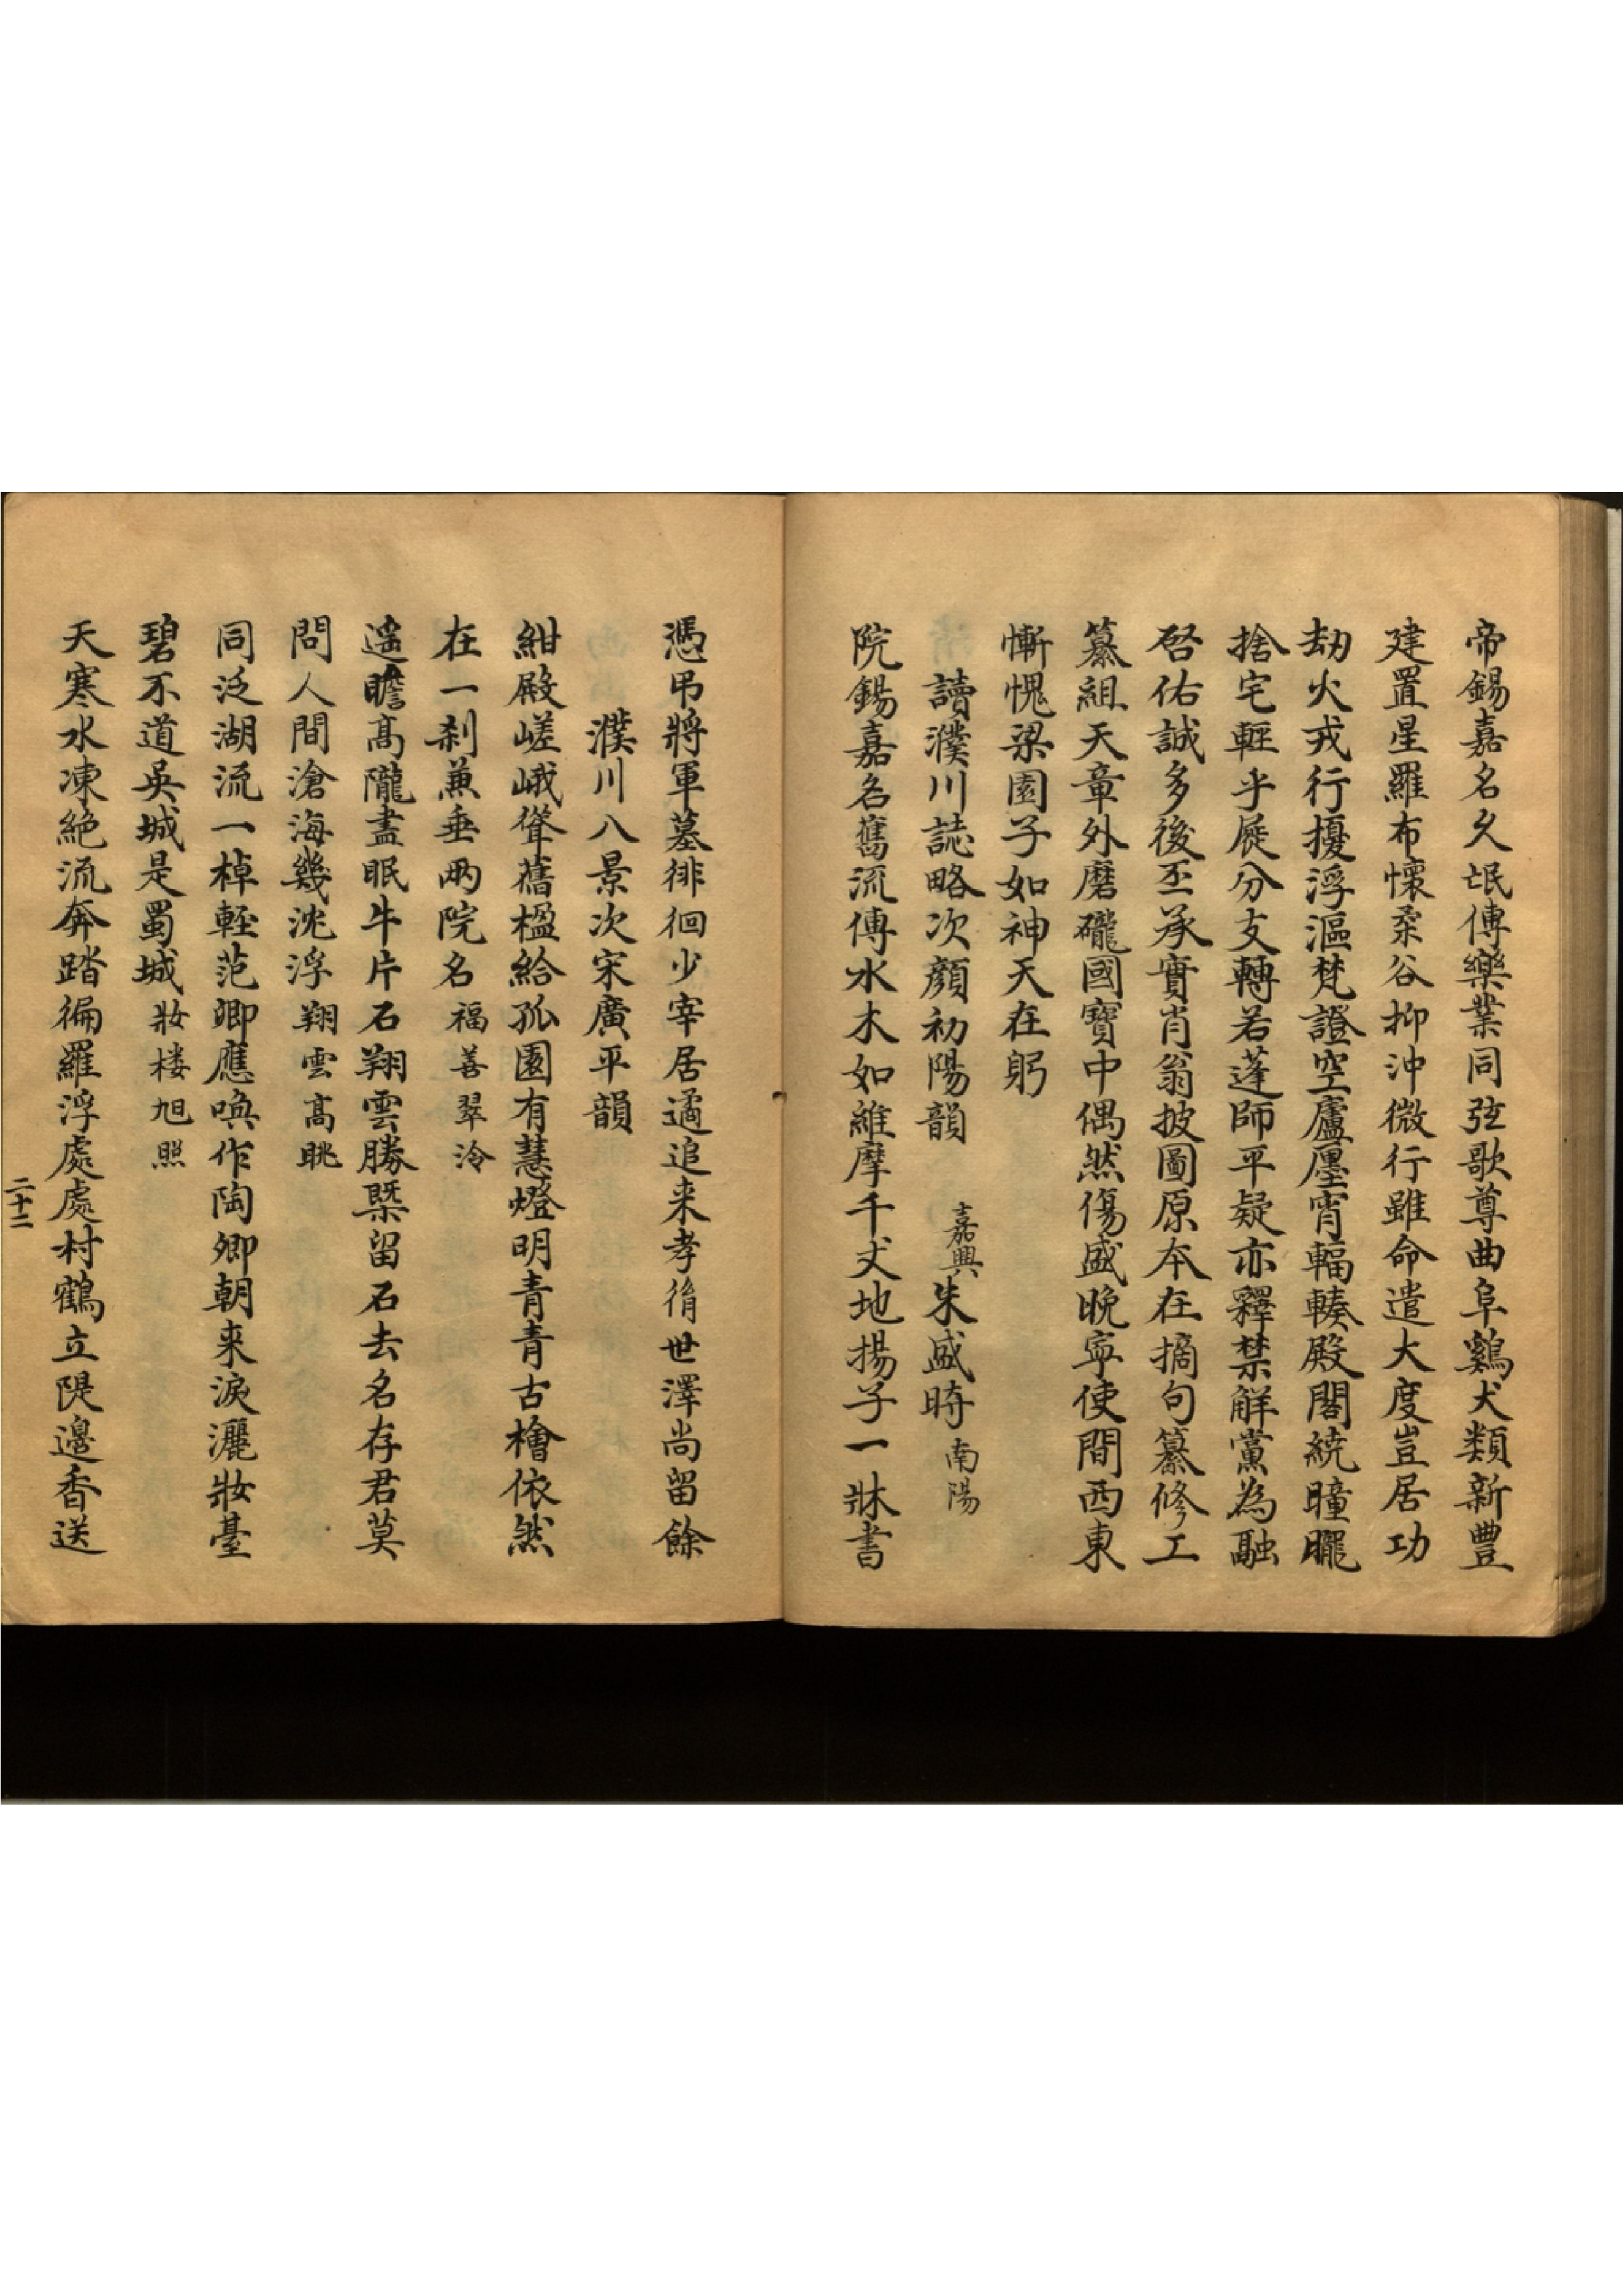 帝錫嘉名久氓傳樂業同弦歌尊曲阜鷄犬類新豐
建置星羅布懷柔谷抑沖微行雖命遣大度豈居功
劫火戎行擾浮漚梵證空廬廛宵輻輳殿閣繞曈曨
捨宅輕乎屣分支轉若蓬師平疑亦釋禁解黨為融
啓佑誠多後丕承實肖翁披圖原本在摘句纂修工
纂組天章外磨礲國寶中偶然傷盛晚寧使間西東
慚愧梁園子如神天在躬
讀濮川誌略次顏初陽韻 嘉興朱盛時南陽
院錫嘉名舊流傳水木如維摩千丈地揚子一牀書
憑弔將軍墓徘徊少宰居遹追来孝脩世澤尚留餘
濮川八景次宋廣平韻
紺殿嵯峨聳舊楹給孤園有慧燈明青青古檜依然
在一刹兼垂兩院名福善翠泠
遥瞻高隴盡眠牛片石翔雲勝槩留石去名存君莫
問人間滄海幾沈浮翔雲高眺
同泛湖流一棹輕范卿應喚作陶卿朝来淚灑妝臺
碧不道吳城是蜀城妝楼旭照
天寒水凍絶流奔踏徧羅浮處處村鶴立隄邊香送
二十二